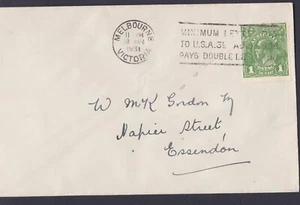 MELBOURNE
1931
VICTORIA
MINIMUM
TO U.S.A.
PAYS DOUBLE
1
W McK Gordon
Napier Street,
Essendon